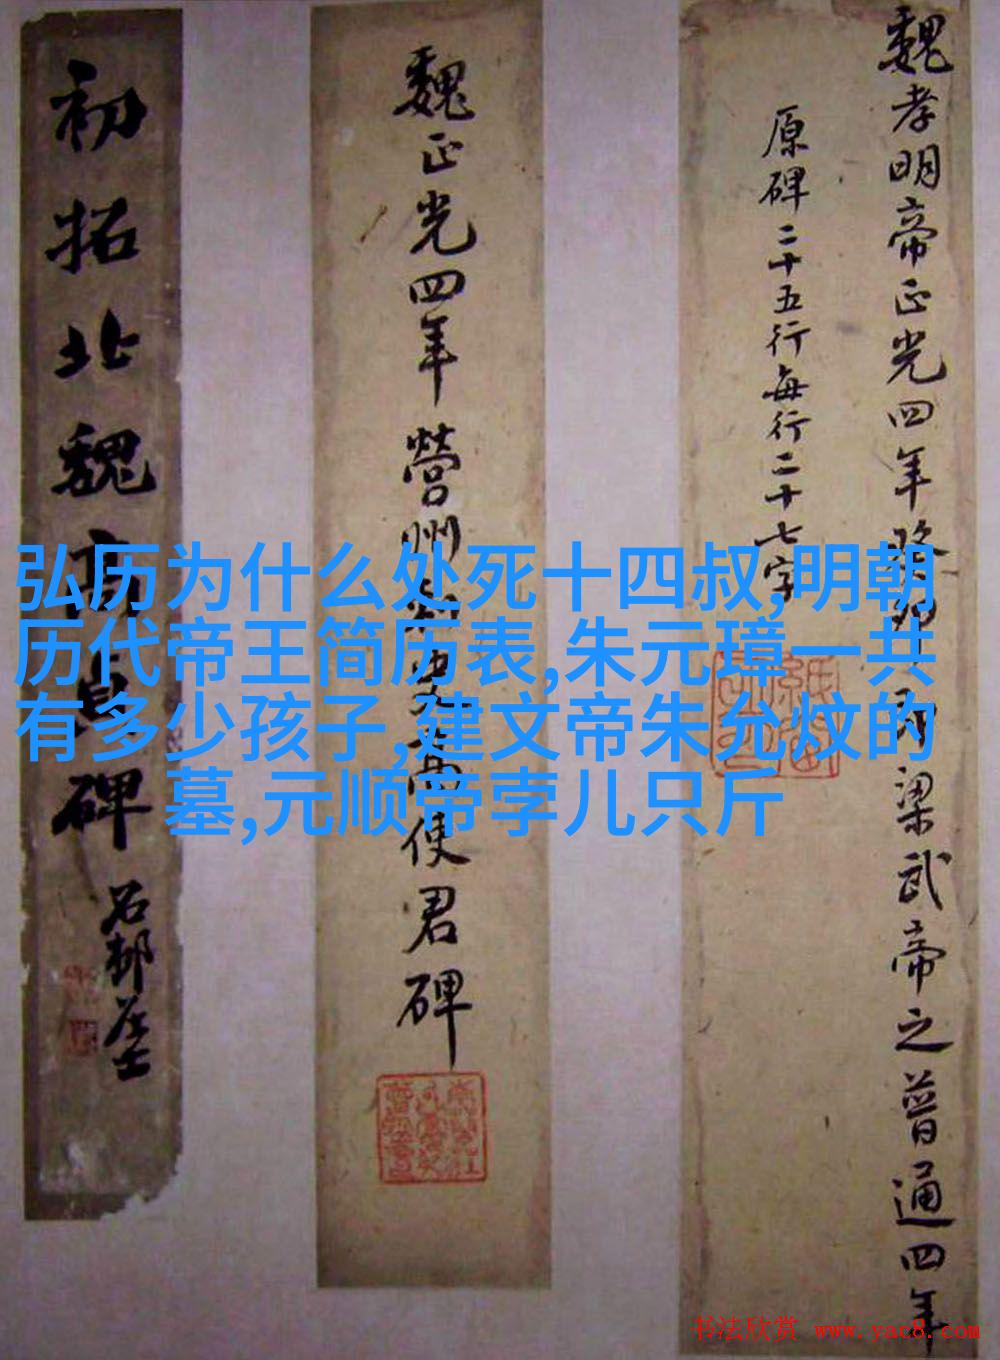 魏孝明帝正光四年癸卯即梁武帝之普通四年
原碑二十五行每行二十七字
魏正光四年營州刺史高使君碑
初拓北魏高貞碑
石邨居士
弘历为什么处死十四叔,明朝
历代帝王简历表,朱元璋一共
有多少孩子,建文帝朱允炆的
墓,元顺帝孛儿只斤
书法欣赏 www.yac8.com